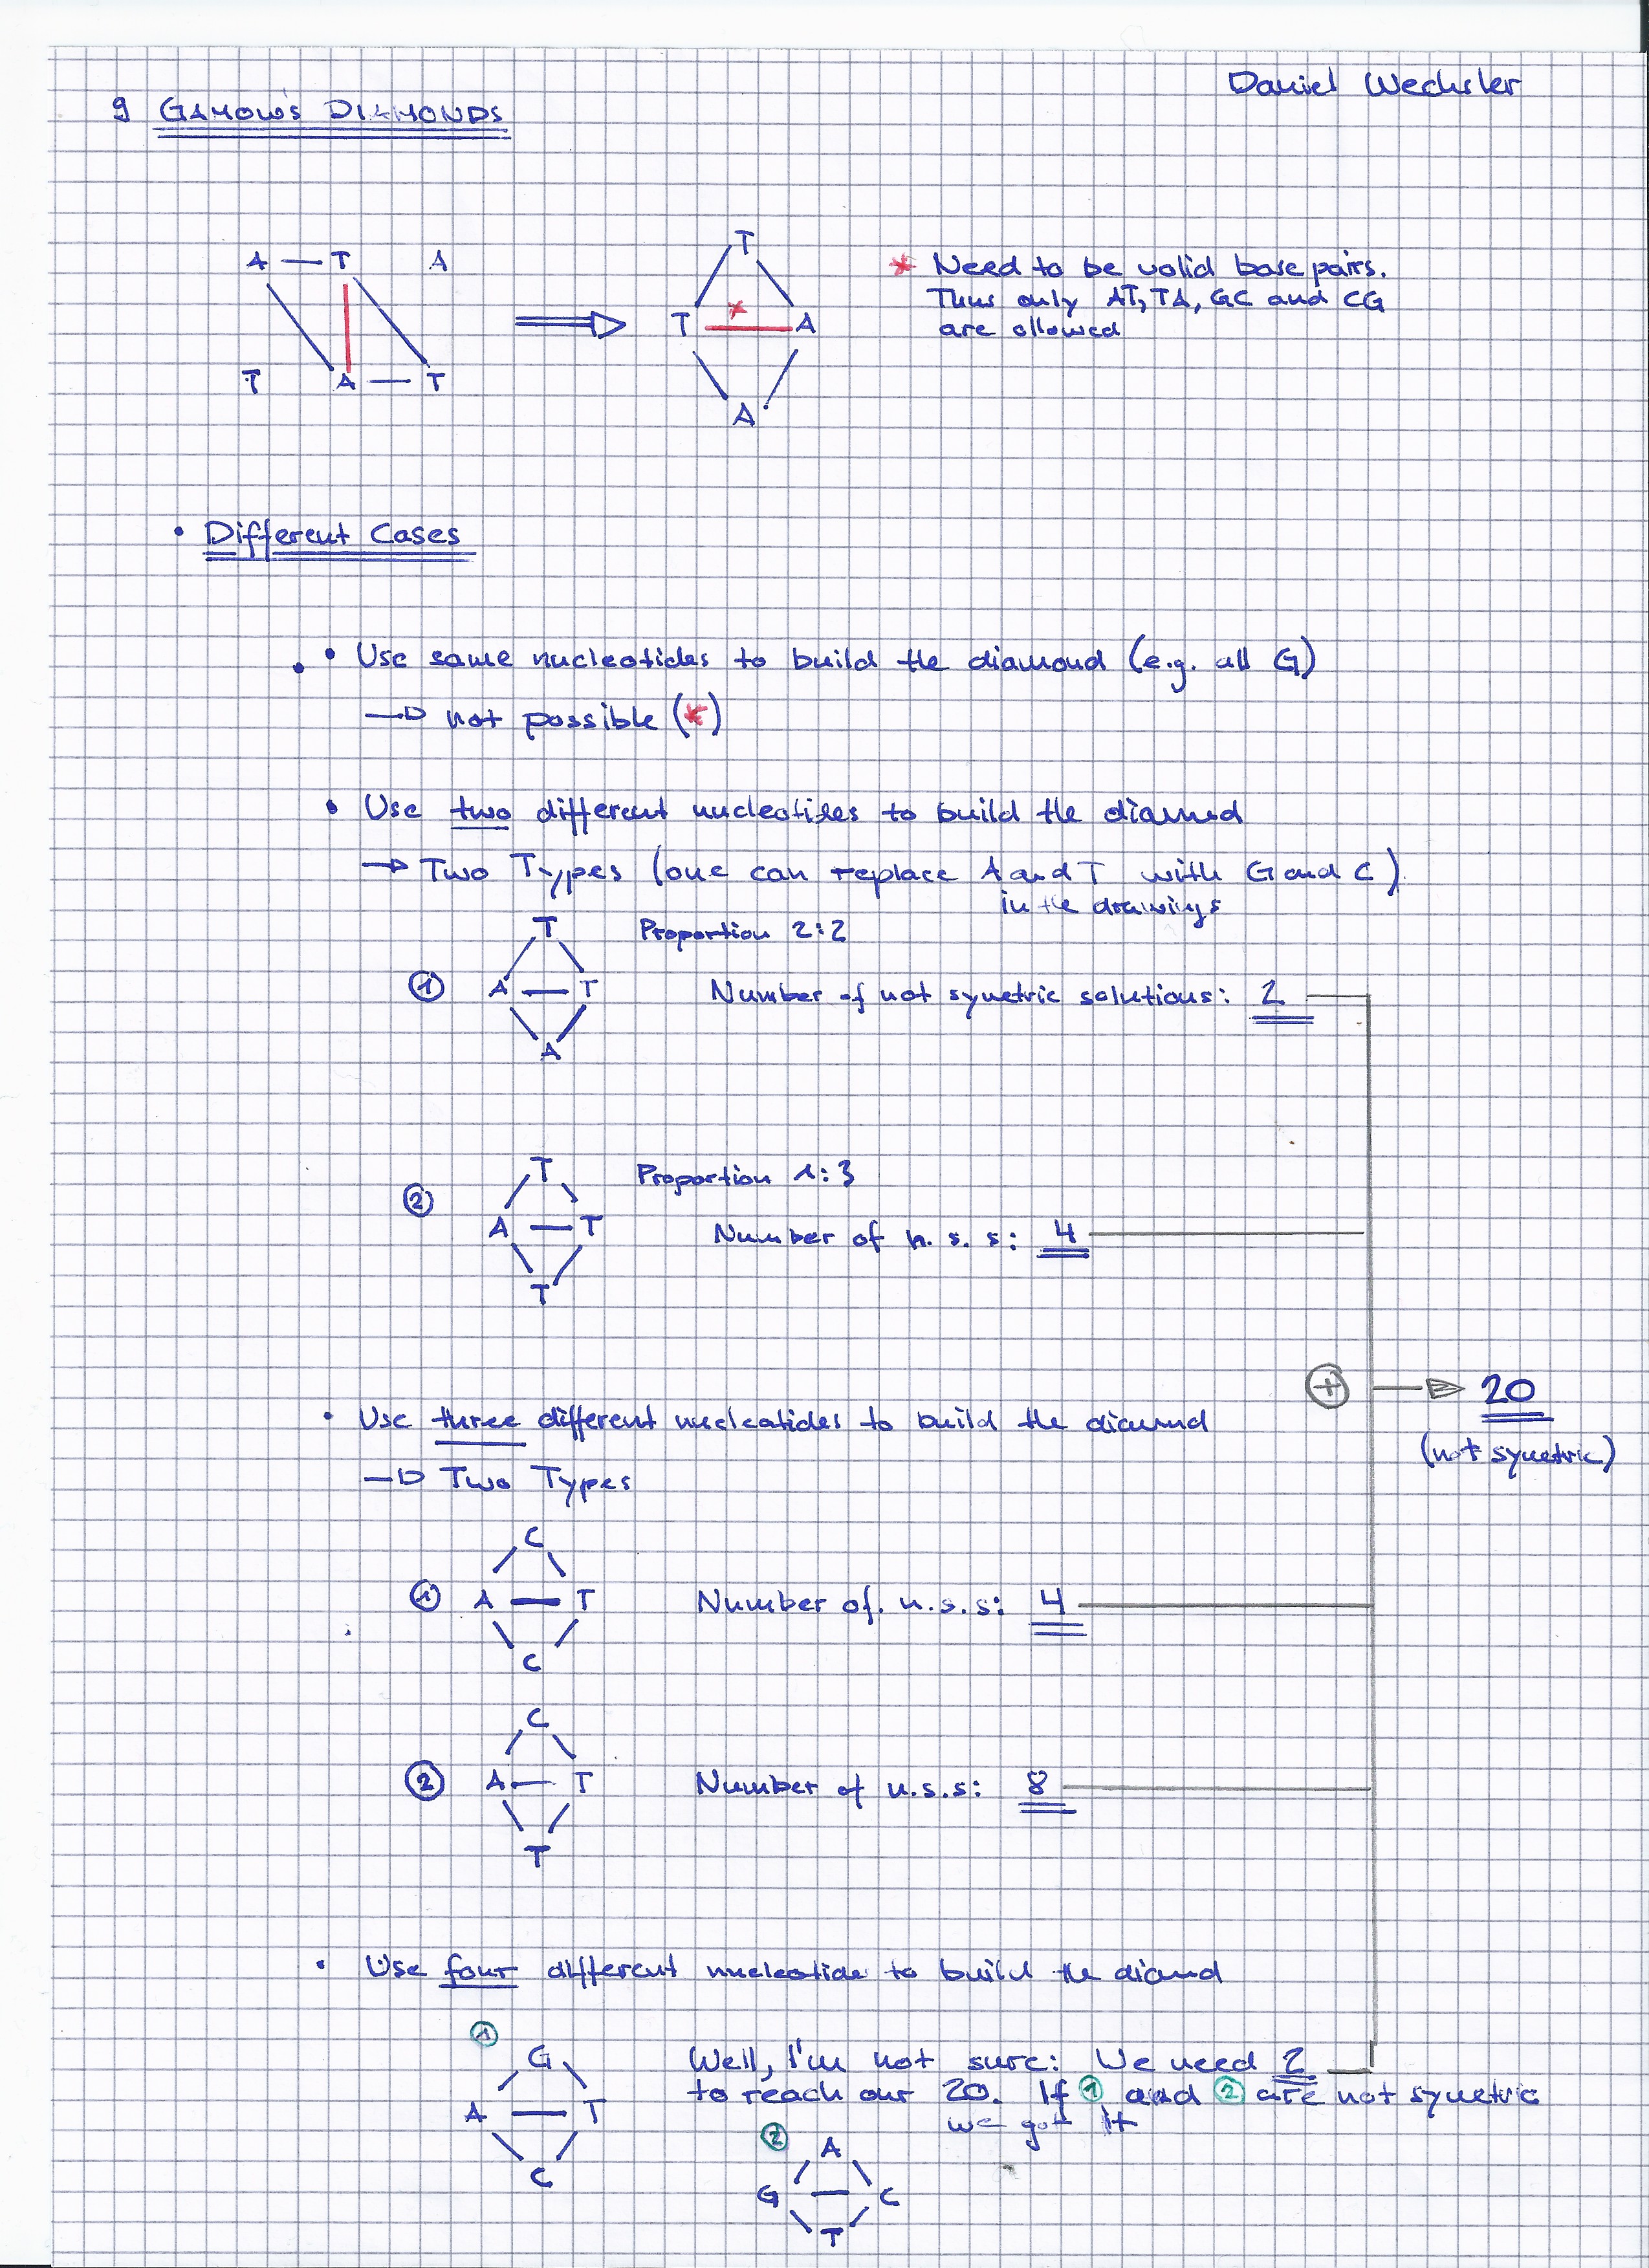 Daniel Wechsler
9 GAMOW'S DIAMONDS
A T A
T A T
T
T * A
A
* Need to be valid base pairs.
Thus only AT, TA, GC and CG
are allowed
• Different Cases
• Use same nucleotides to build the diamond (e.g. all G)
→ not possible (*)
• Use two different nucleotides to build the diamond
→ Two Types (one can replace A and T with G and C)
in the drawings
T
Proportion 2:2
① A T
Number of not symetric solutions: 2
A
T
Proportion 1:3
② A T
Number of n.s.s: 4
T
+ → 20
(not symetric)
• Use three different nucleotides to build the diamond
→ Two Types
C
① A T
Number of. n.s.s: 4
C
C
② A T
Number of n.s.s: 8
T
• Use four different nucleotide to build the diamond
①
G
A T
C
Well, I'm not sure: We need 2
to reach our 20. If ① and ② are not symetric
we got it
②
A
G C
T